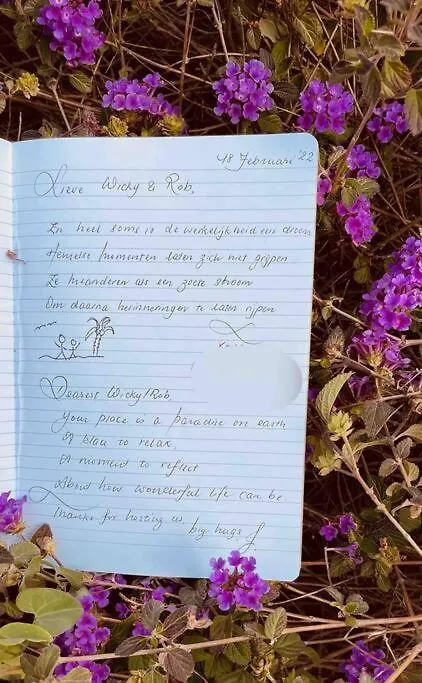 18 Februari '22
Lieve Wicky & Rob,
En heel soms is de werkelijkheid een droom
Hemelse momenten laten zich niet grijpen
Ze meanderen als een zoete stroom
Om daarna herinneringen te laten rijpen
Dearest Wicky/Rob,
Your place is a paradise on earth
A place to relax
A moment to reflect
About how wonderful life can be
Thanks for hosting us, big hugs